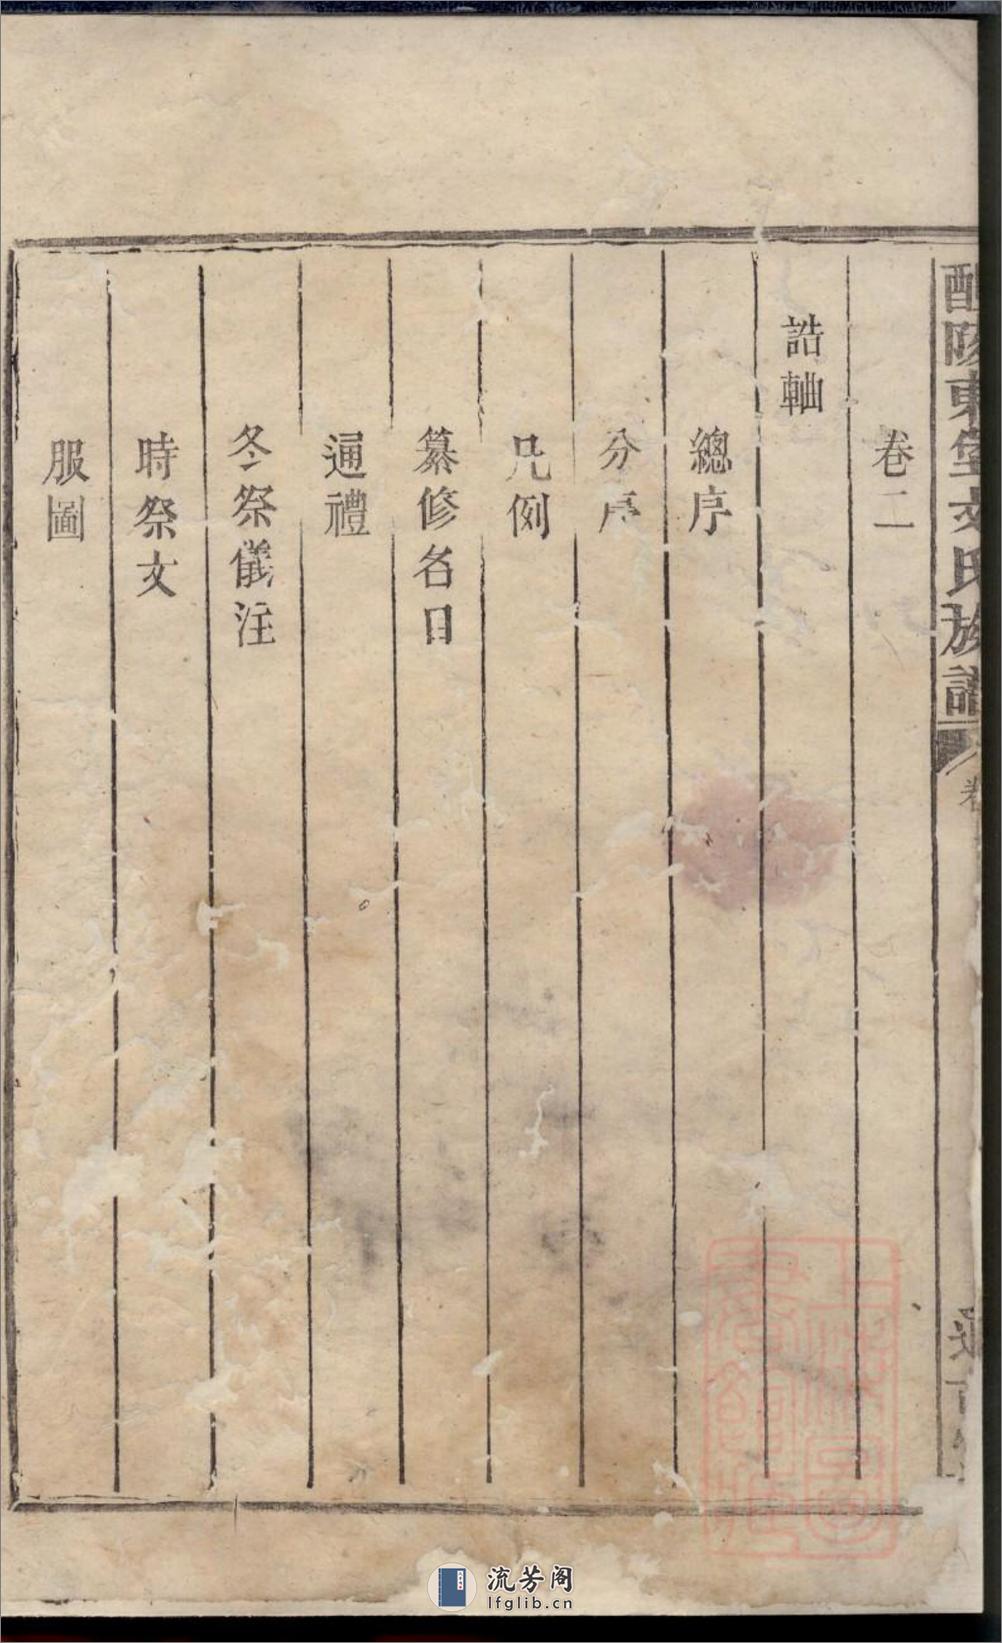 醴陵東堂文氏族譜
卷
卷二
誥軸
總序
分序
凡例
纂修名目
通禮
冬祭儀注
時祭文
服圖
流芳阁
lfglib.cn